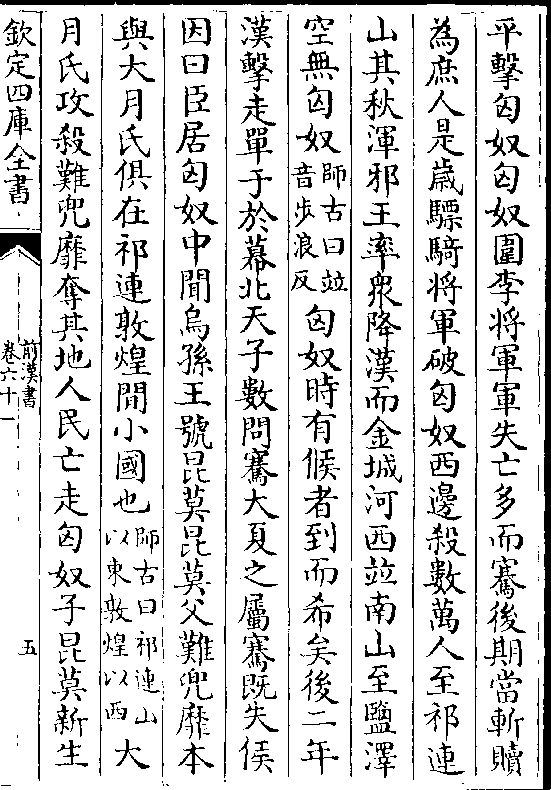 平擊匈奴匈奴圍李將軍軍失亡多而騫後期當斬贖
為庶人是歲驃騎將軍破匈奴西邊殺數萬人至祁連
山其秋渾邪王率衆降漢而金城河西竝南山至鹽澤
空無匈奴師古曰竝音步浪反匈奴時有候者到而希矣後二年
漢擊走單于於幕北天子數問騫大夏之屬騫既失侯
因曰臣居匈奴中聞烏孫王號昆莫昆莫父難兜靡本
與大月氏俱在祁連敦煌間小國也師古曰祁連山以東敦煌以西大
月氏攻殺難兜靡奪其地人民亡走匈奴子昆莫新生
欽定四庫全書
前漢書
卷六十一
五